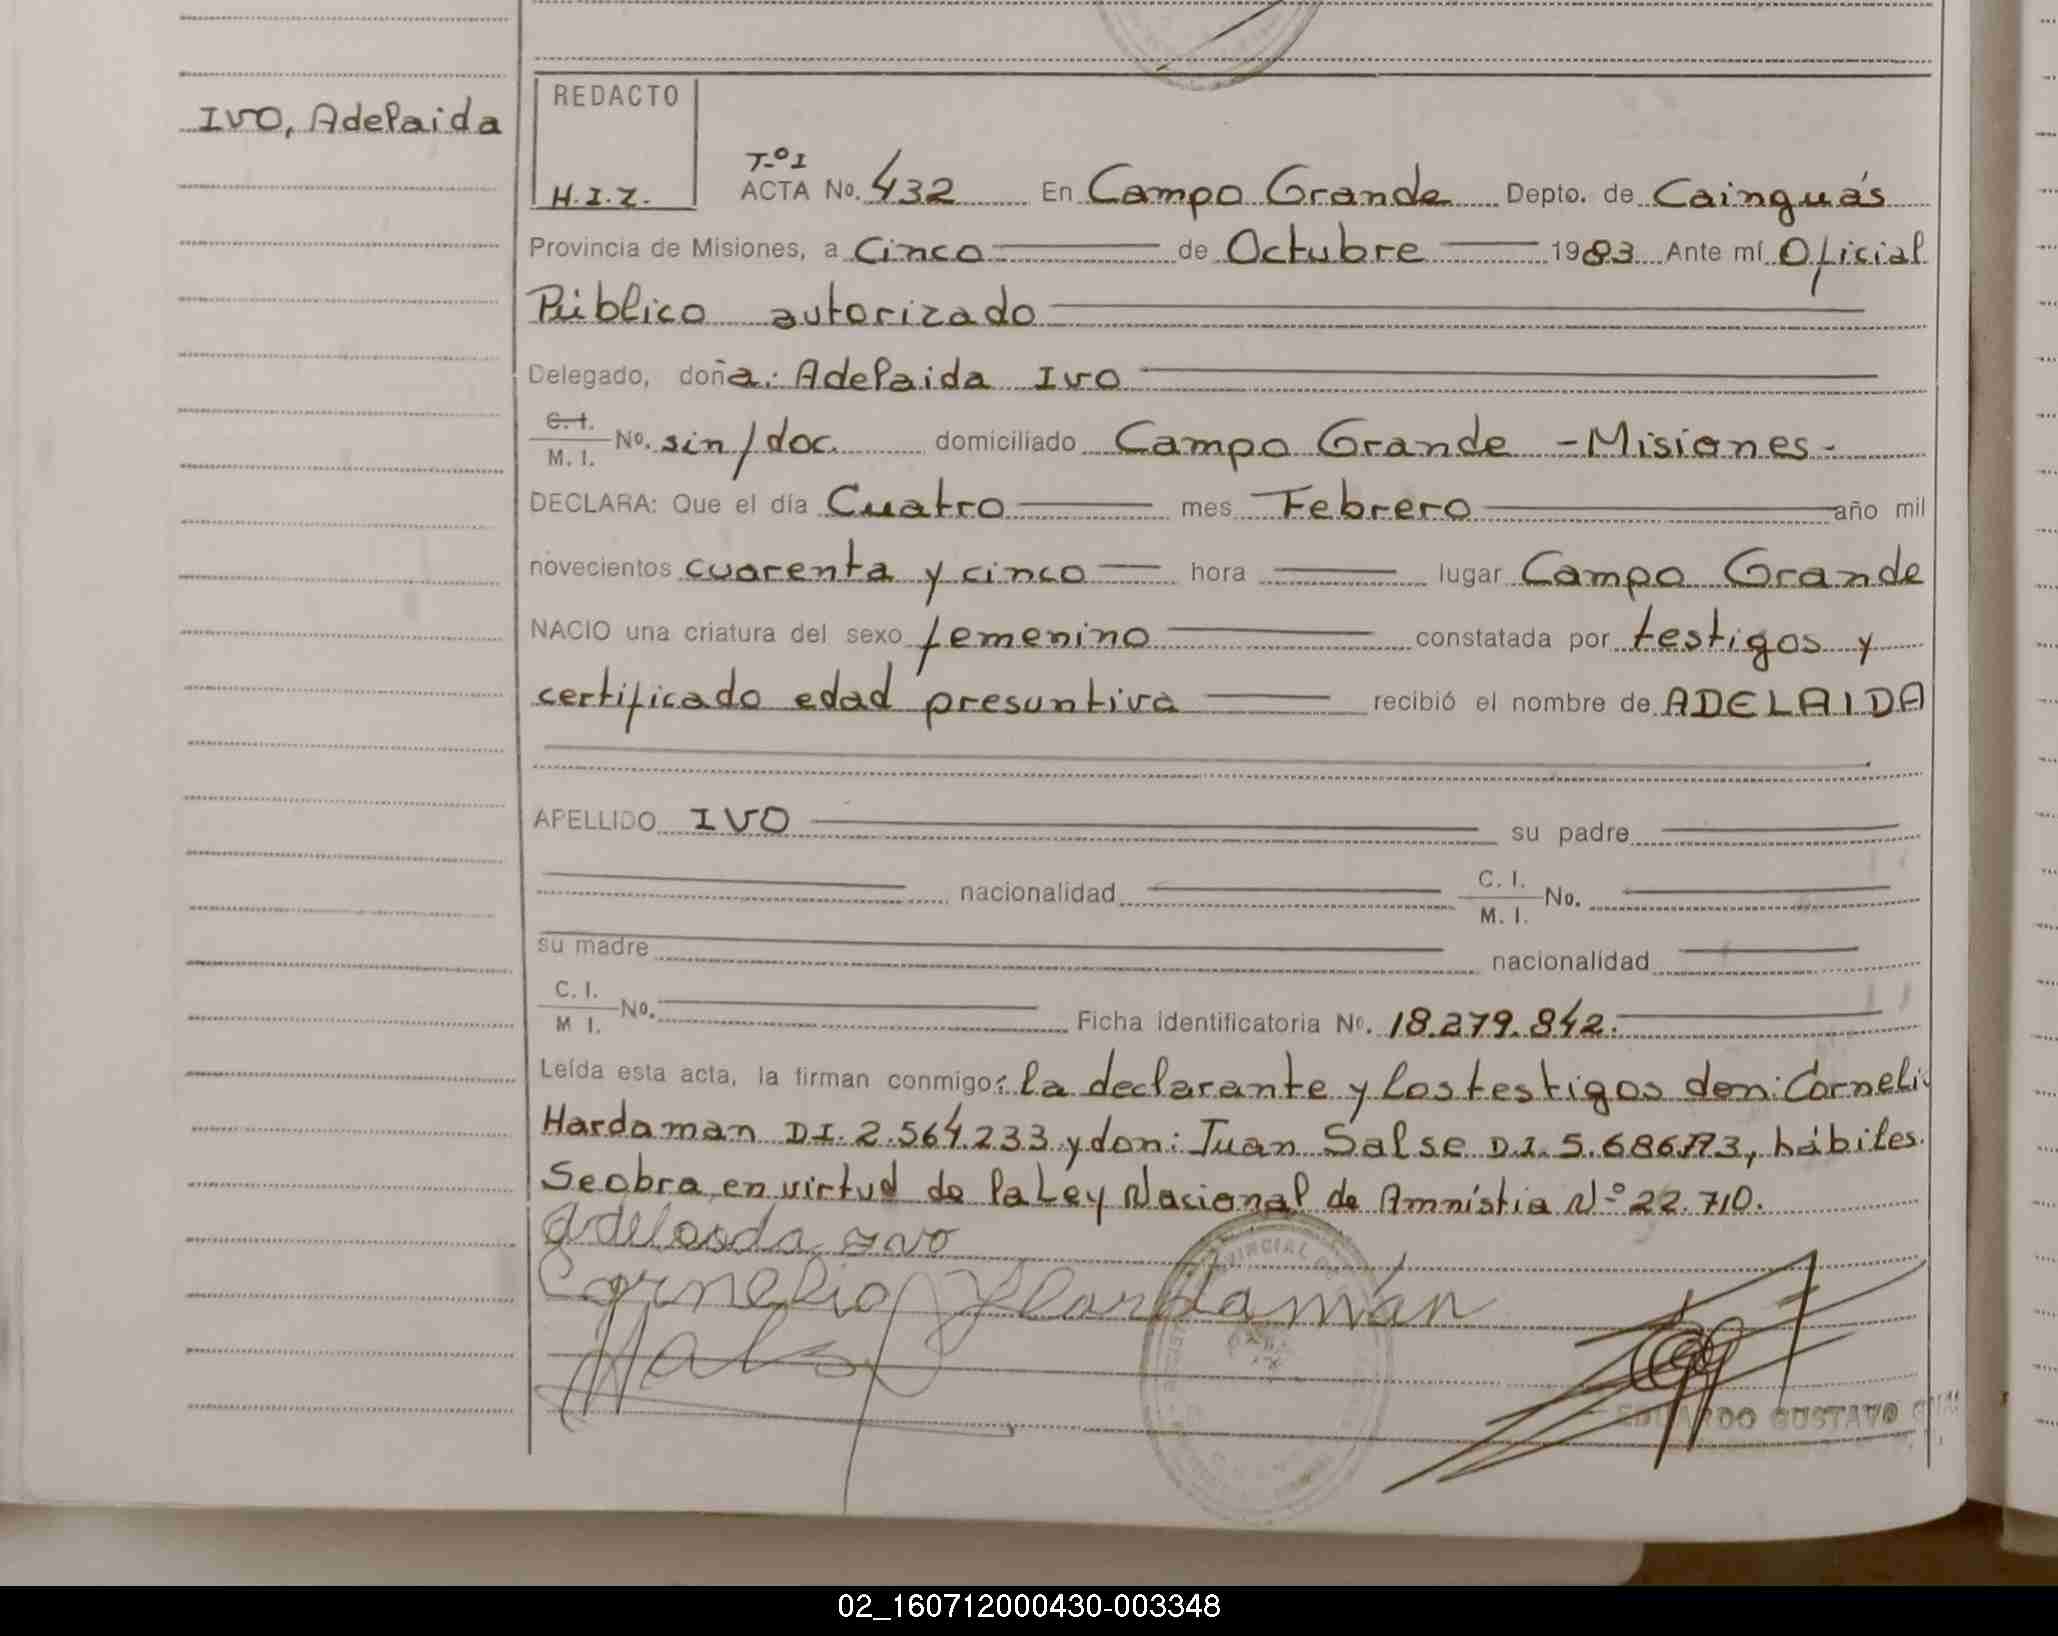 IVO, Adelaida
REDACTO
H.I.Z.
T-º I
ACTA No. 432 En Campo Grande Depto. de Cainguás
Provincia de Misiones, a Cinco de Octubre 1983 Ante mí Oficial
Público autorizado
Delegado, doña: Adelaida Ivo
C. I.
M. I. No. sin/doc. domiciliado Campo Grande - Misiones -
DECLARA: Que el día Cuatro mes Febrero año mil
novecientos cuarenta y cinco hora lugar Campo Grande
NACIO una criatura del sexo femenino constatada por testigos y
certificado edad presuntiva recibió el nombre de ADELAIDA
APELLIDO IVO su padre
nacionalidad C. I.
M. I. No.
su madre nacionalidad
C. I.
M I. No. Ficha identificatoria No. 18.279.842.
Leída esta acta, la firman conmigo: la declarante y los testigos don: Cornelio
Hardaman D.I. 2.564.233 y don: Juan Salse D.I. 5.686.773, hábiles.
Se obra en virtud de la Ley Nacional de Amnistia Nº 22.710.
Adelaida Ivo
Cornelio Hardaman
EDUARDO GUSTAVO
02_160712000430-003348